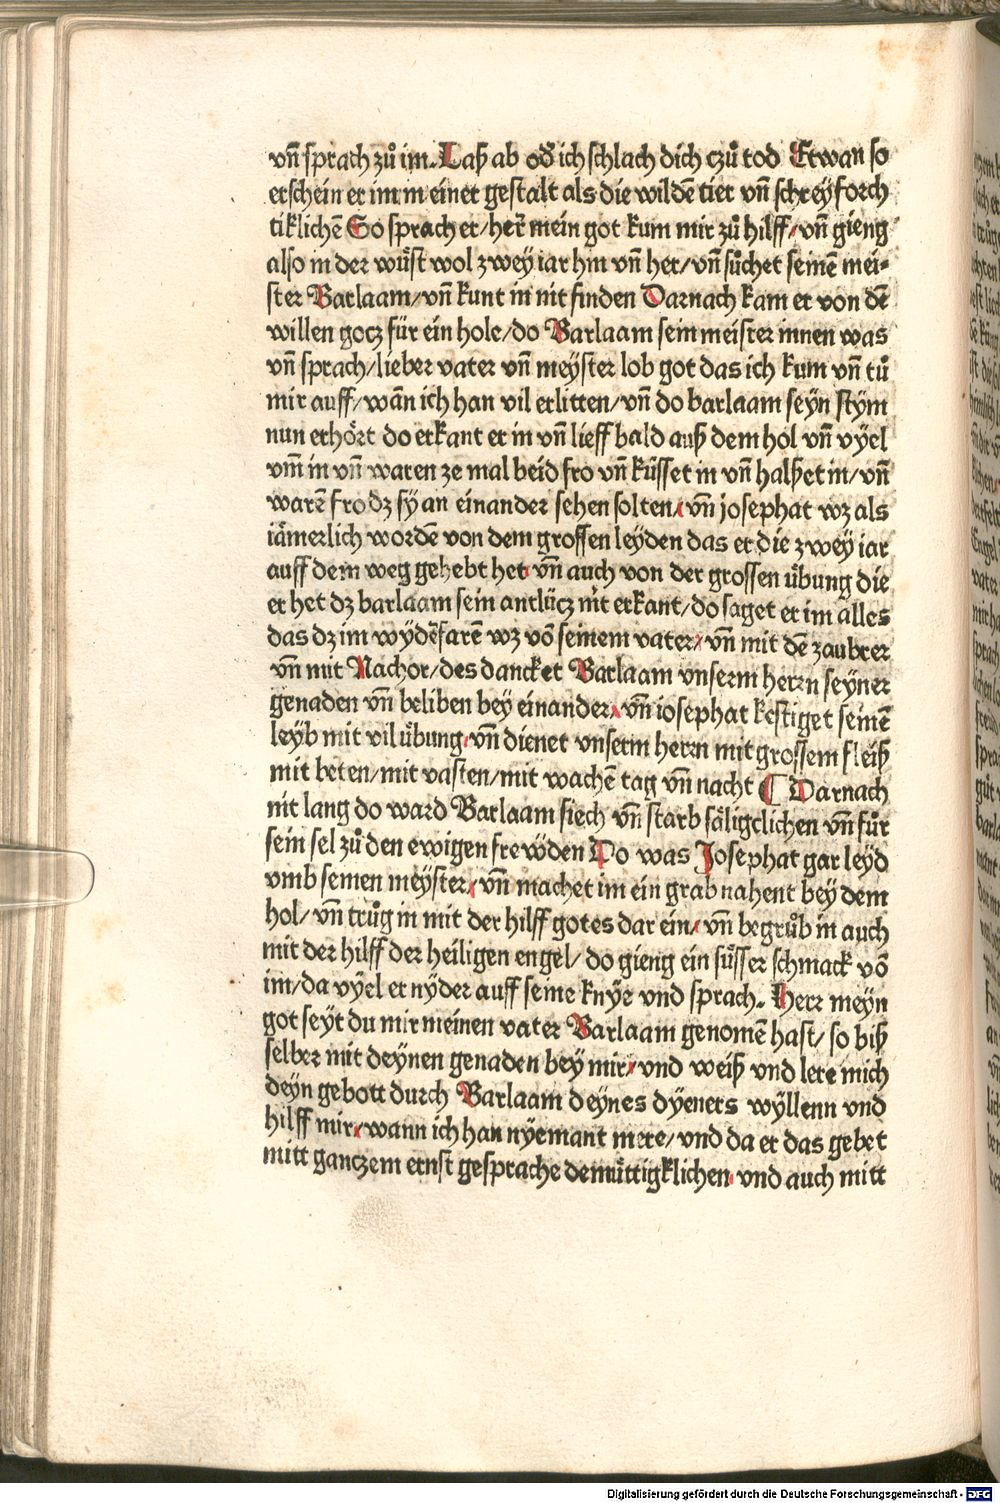 vn̄ sprach zů im. Laß ab oď ich schlach dich czů tod Etwan so
erschein er im in einer gestalt als die wildē tier vn̄ schrey forch
tiklichē So sprach er/ her̄ mein got kum mir zů hilff/ vn̄ gieng
also in der wüst wol zwey iar hin vn̄ her/ vn̄ sůchet seinē mei⸗
ster Barlaam/ vn̄ kunt in nit finden Darnach kam er von dē
willen gocz für ein hole/ do Barlaam sein meister innen was
vn̄ sprach/ lieber vater vn̄ meyster lob got das ich kum vn̄ tů
mir auff/ wān ich han vil erlitten/ vn̄ do barlaam seyn stym
nun erhört do erkant er in vn̄ lieff bald auß dem hol vn̄ vyel
vm̄ in vn̄ waren ze mal beid fro vn̄ küsset in vn̄ halßet in/ vn̄
warē fro dz sy an einander sehen solten/ vn̄ josephat wz als
iämerlich wordē von dem grossen leyden das er die zwey iar
auff dem weg gehebt het/ vn̄ auch von der grossen übung die
er het dz barlaam sein antlücz nit erkant/ do saget er im alles
das dz im wyďfarē wz vō seinem vater/ vn̄ mit dē zaubrer
vn̄ mit Nachor/ des dancket Barlaam vnserm herrn seyner
genaden vn̄ beliben bey einander/ vn̄ iosephat kestiget seinē
leyb mit vil übung/ vn̄ dienet vnserm herrn mit grossem fleiß
mit beten/ mit vasten/ mit wachē tag vn̄ nacht ¶ Darnach
nit lang do ward Barlaam siech vn̄ starb säligclichen vn̄ für
sein sel zů den ewigen frewden Do was Josephat gar leyd
vmb seinen meyster/ vn̄ machet im ein grab nahent bey dem
hol/ vn̄ trůg in mit der hilff gotes dar ein/ vn̄ begrůb in auch
mit der hilff der heiligen engel/ do gieng ein süsser schmack vō
im/ da vyel er nyder auff seine knye vnd sprach. Herr meyn
got seyt du mir meinen vater Barlaam genomē hast/ so biß
selber mit deynen genaden bey mir/ vnd weiß vnd lere mich
deyn gebott durch Barlaam deynes dyeners wyllenn vnd
hilff mir/ wann ich han nyemant mere/ vnd da er das gebet
mitt ganczem ernst gesprache demüttigklichen vnd auch mitt
Digitalisierung gefördert durch die Deutsche Forschungsgemeinschaft - DFG